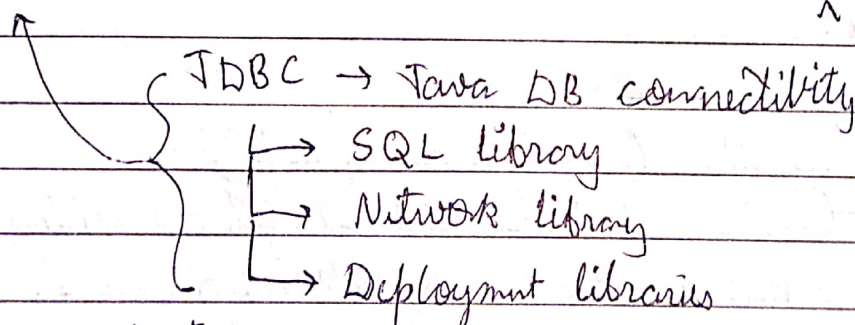 JDBC → Java DB connectibity
→ SQL library
→ Network library
→ Deployment libraries